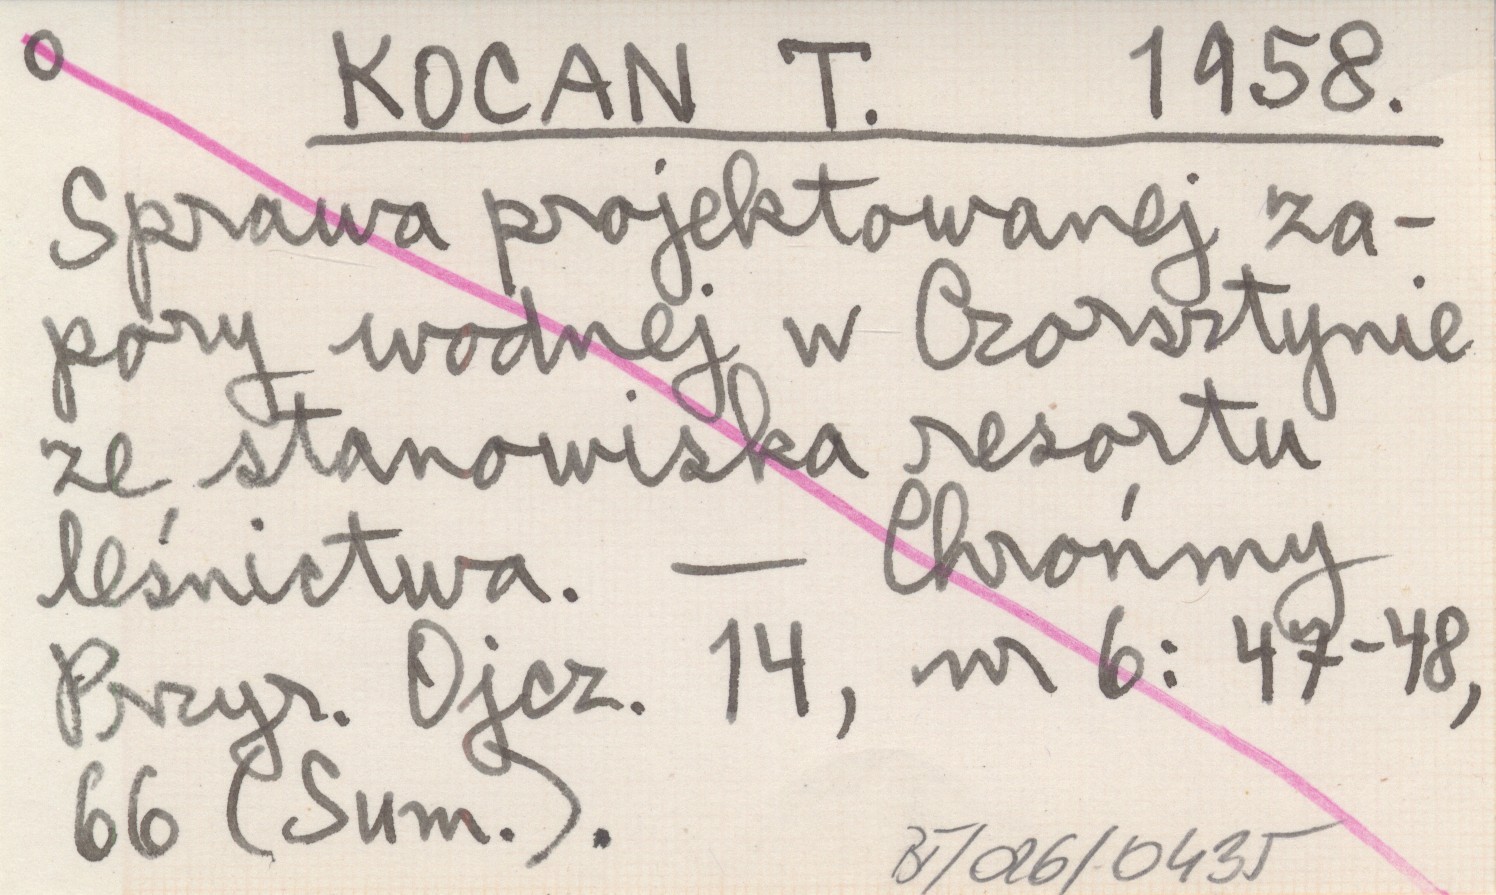 o KOCAN T. 1958.
Sprawa projektowanej za-
pory wodnej w Czorsztynie
ze stanowiska resortu
leśnictwa. — Chrońmy
Przyr. Ojcz. 14, nr 6: 47-48,
66 (Sum.).
/026/0435